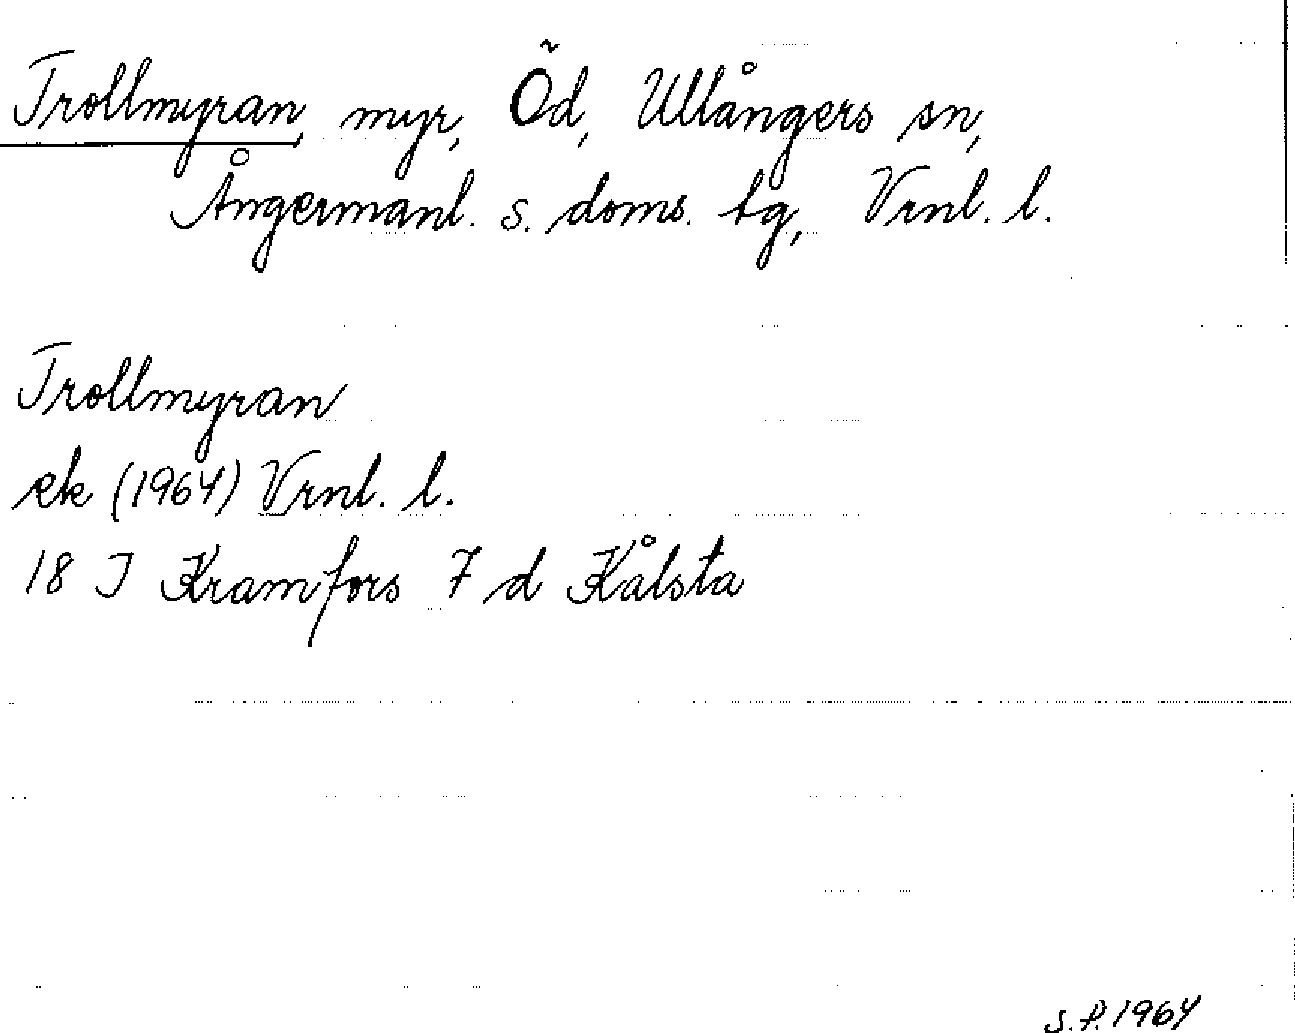 Trollmyran, myr, Öd, Ullångers sn,
Ångermanl. s. doms. tg, Vrnl. l.
Trollmyran
ek (1964) Vrnl. l.
18 I Kramfors 7 d Kålsta
S.P. 1964